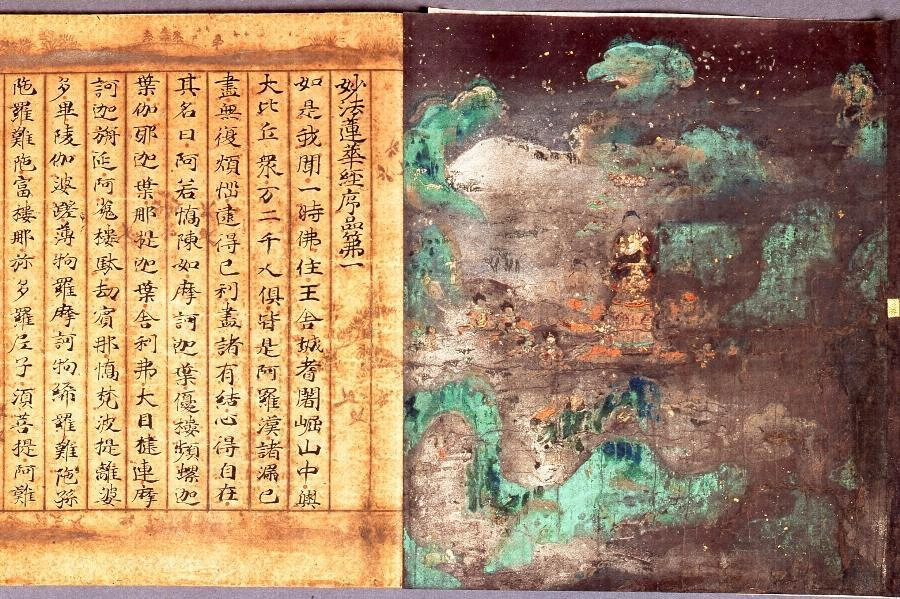 妙法蓮華経序品第一
如是我聞一時佛住王舎城耆闍崛山中與
大比丘衆万二千人俱皆是阿羅漢諸漏已
盡無復煩惱逮得己利盡諸有結心得自在
其名曰阿若憍陳如摩訶迦葉優樓頻螺迦
葉伽耶迦葉那提迦葉舎利弗大目揵連摩
訶迦旃延阿㝹樓馱劫賓那憍梵波提離婆
多畢陵伽婆蹉薄拘羅摩訶拘絺羅難陁孫
陁羅難陁富樓那弥多羅尼子湏菩提阿難